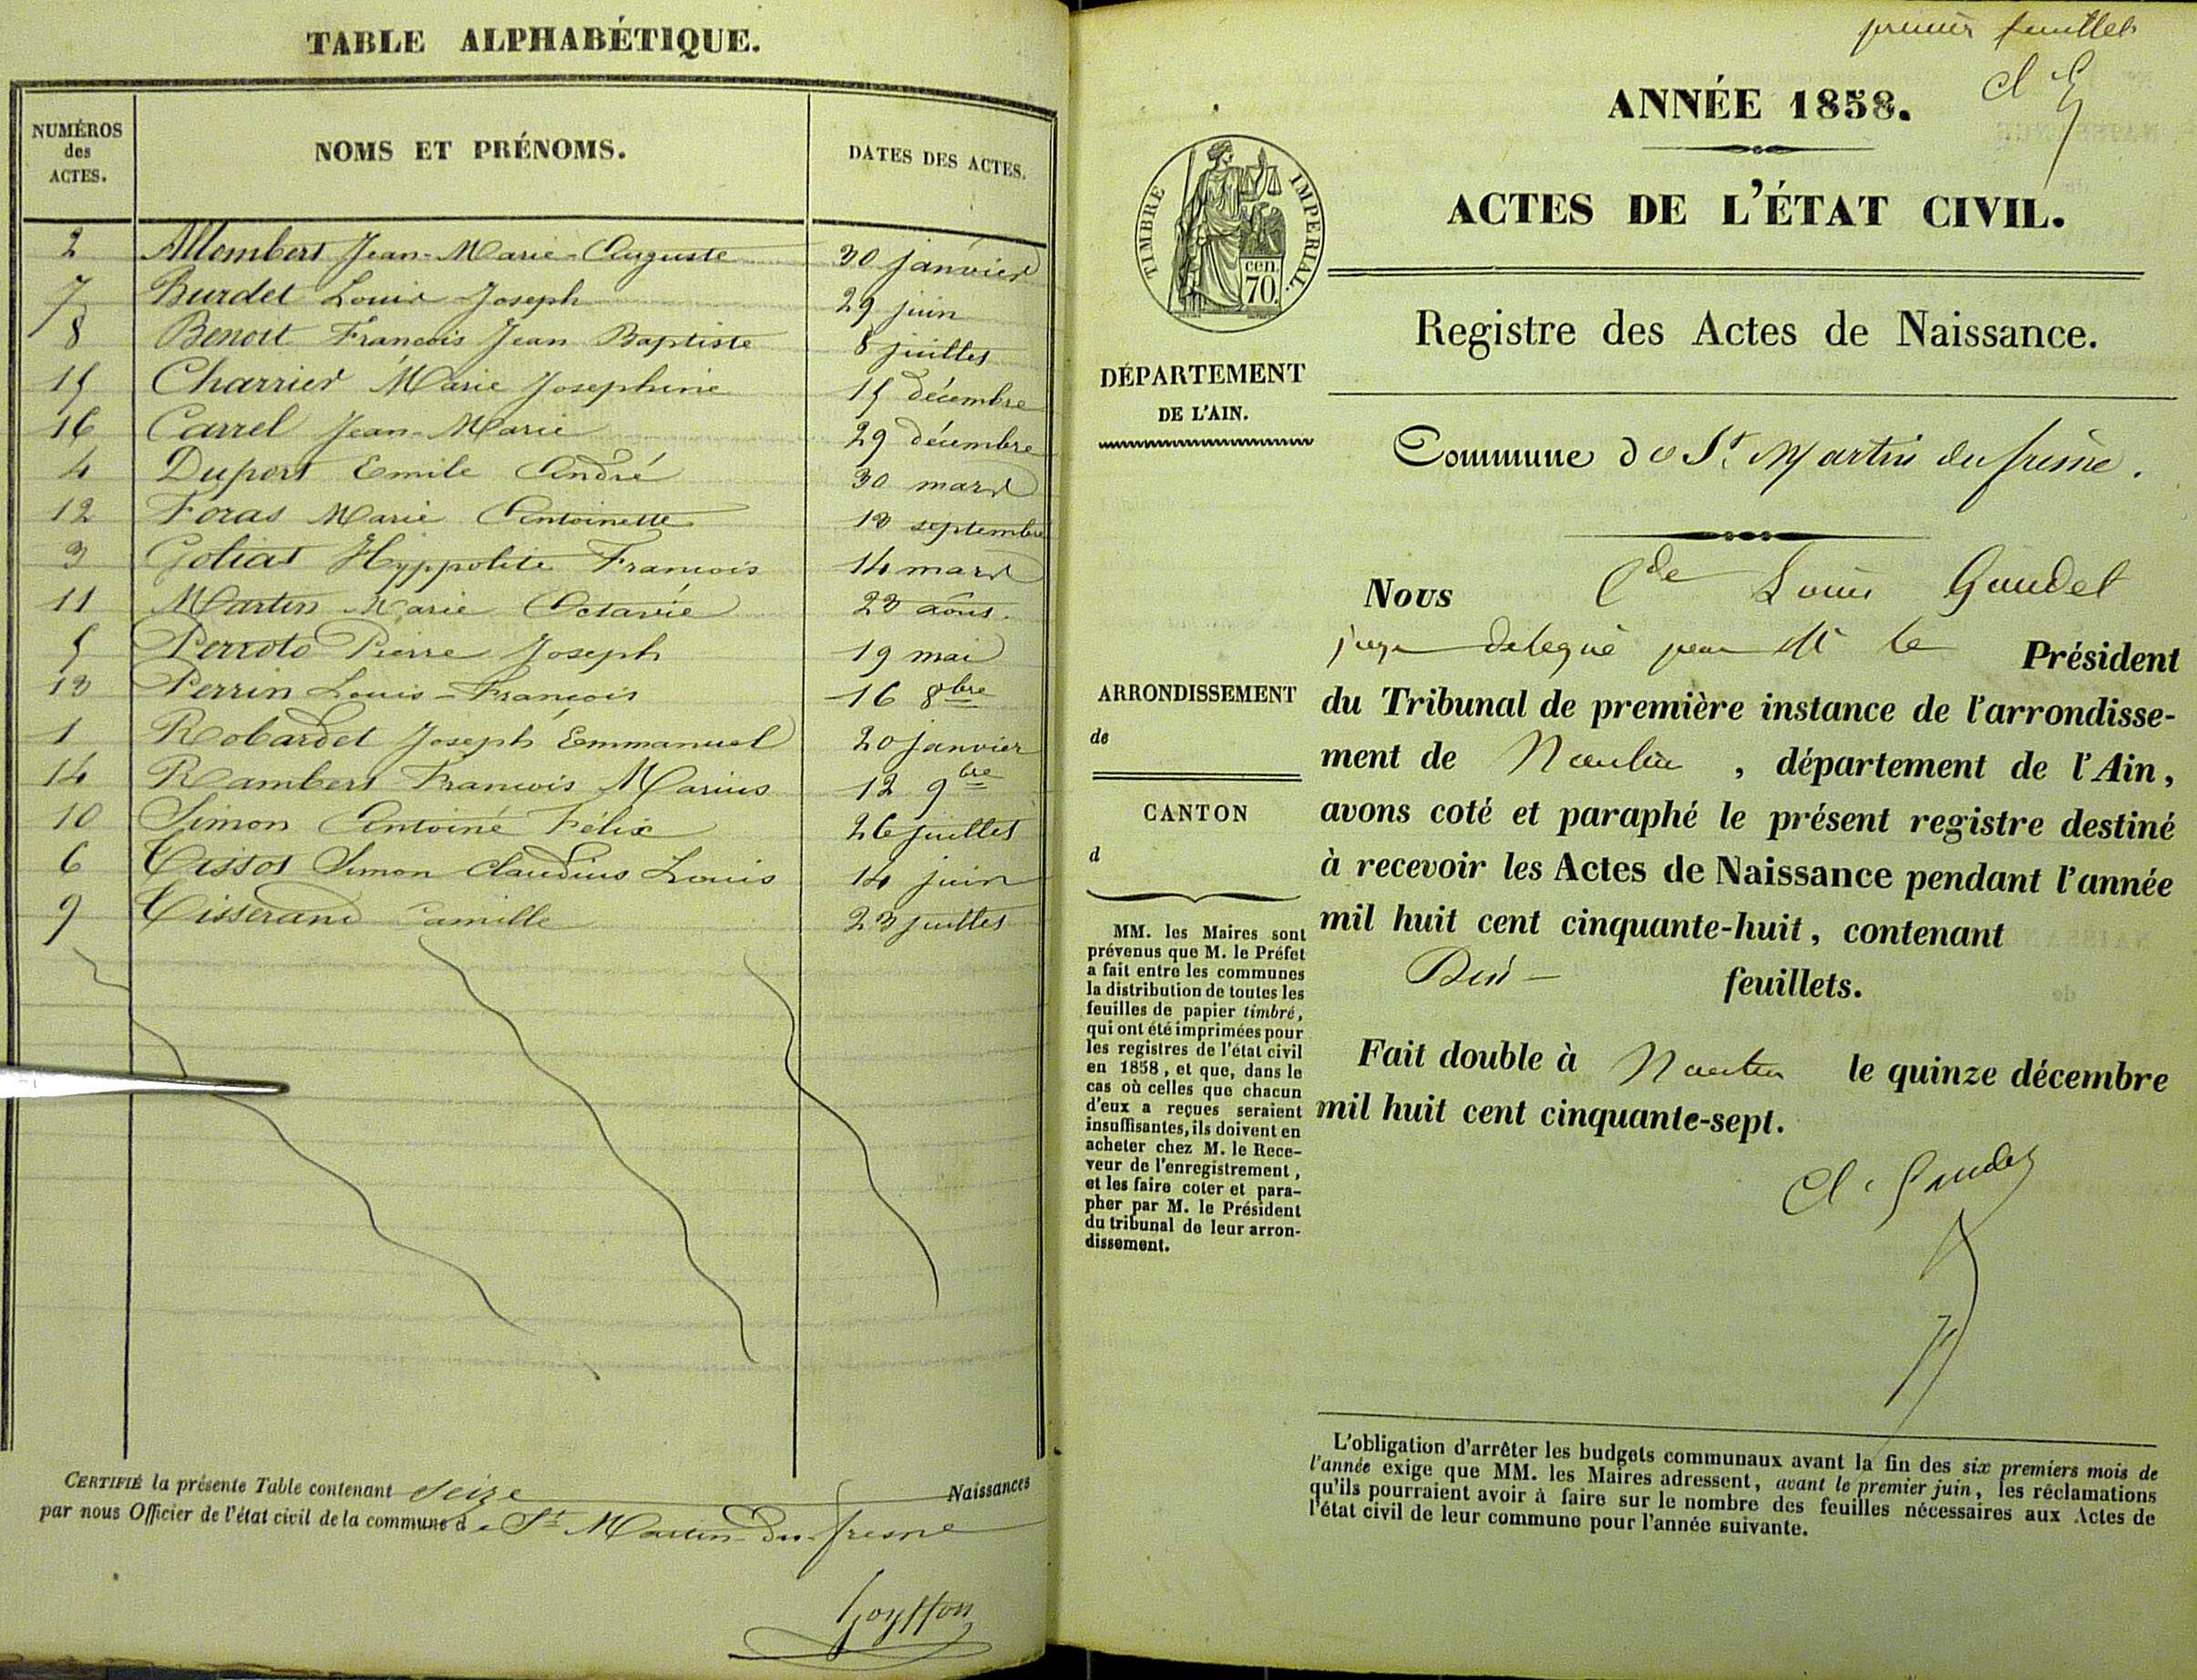 TABLE ALPHABÉTIQUE.
NUMÉROS des ACTES. NOMS ET PRÉNOMS. DATES DES ACTES.
2 Allombert Jean-Marie-Auguste 30 janvier
7 Burdet Louis Joseph 29 juin
8 Benoit François Jean Baptiste 8 juillet
15 Charrier Marie Josephine 15 décembre
16 Carrel Jean-Marie 29 décembre
4 Duport Emile André 30 mars
12 Foras Marie Antoinette 13 septembre
3 Goliat Hyppolite François 14 mars
11 Martin Marie Octavie 23 août.
5 Perroto Pierre Joseph 19 mai
13 Perrin Louis-François 16 8bre
1 Robardet Joseph Emmanuel 20 janvier
14 Rambert François Marius 12 9bre
10 Simon Antoine Félix 26 juillet
6 Tissot Simon Claudius Louis 14 juin
9 Tisserand Camille 23 juillet
CERTIFIÉ la présente Table contenant Seize Naissances
par nous Officier de l'état civil de la commune de St Martin-du-fresne
premier feuillet
ANNÉE 1858.
ACTES DE L'ÉTAT CIVIL.
TIMBRE IMPERIAL.
cen.
70.
Registre des Actes de Naissance.
DÉPARTEMENT
DE L'AIN.
Commune de St. Martin du fresne.
Nous Cde Louis Gaudet
juge delegué par M le Président
du Tribunal de première instance de l'arrondisse-
ment de Nantua, département de l'Ain,
avons coté et paraphé le présent registre destiné
à recevoir les Actes de Naissance pendant l'année
mil huit cent cinquante-huit, contenant
feuillets.
Fait double à Nantua le quinze décembre
mil huit cent cinquante-sept.
Cl. Gaudet
ARRONDISSEMENT
de
CANTON
d
MM. les Maires sont
prévenus que M. le Préfet
a fait entre les communes
la distribution de toutes les
feuilles de papier timbré,
qui ont été imprimées pour
les registres de l'état civil
en 1858, et que, dans le
cas où celles que chacun
d'eux a reçues seraient
insuffisantes, ils doivent en
acheter chez M. le Rece-
veur de l'enregistrement,
et les faire coter et para-
pher par M. le Président
du tribunal de leur arron-
dissement.
L'obligation d'arrêter les budgets communaux avant la fin des six premiers mois de
l'année exige que MM. les Maires adressent, avant le premier juin, les réclamations
qu'ils pourraient avoir à faire sur le nombre des feuilles nécessaires aux Actes de
l'état civil de leur commune pour l'année suivante.